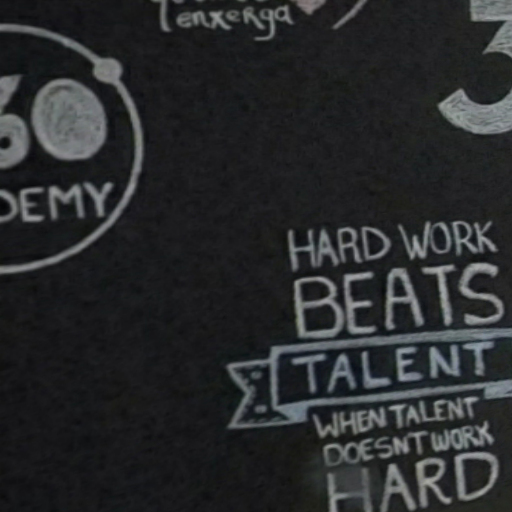 Tenxerga
3
60
DEMY
HARD WORK
BEATS
TALENT
WHEN TALENT
DOESNT WORK
HARD